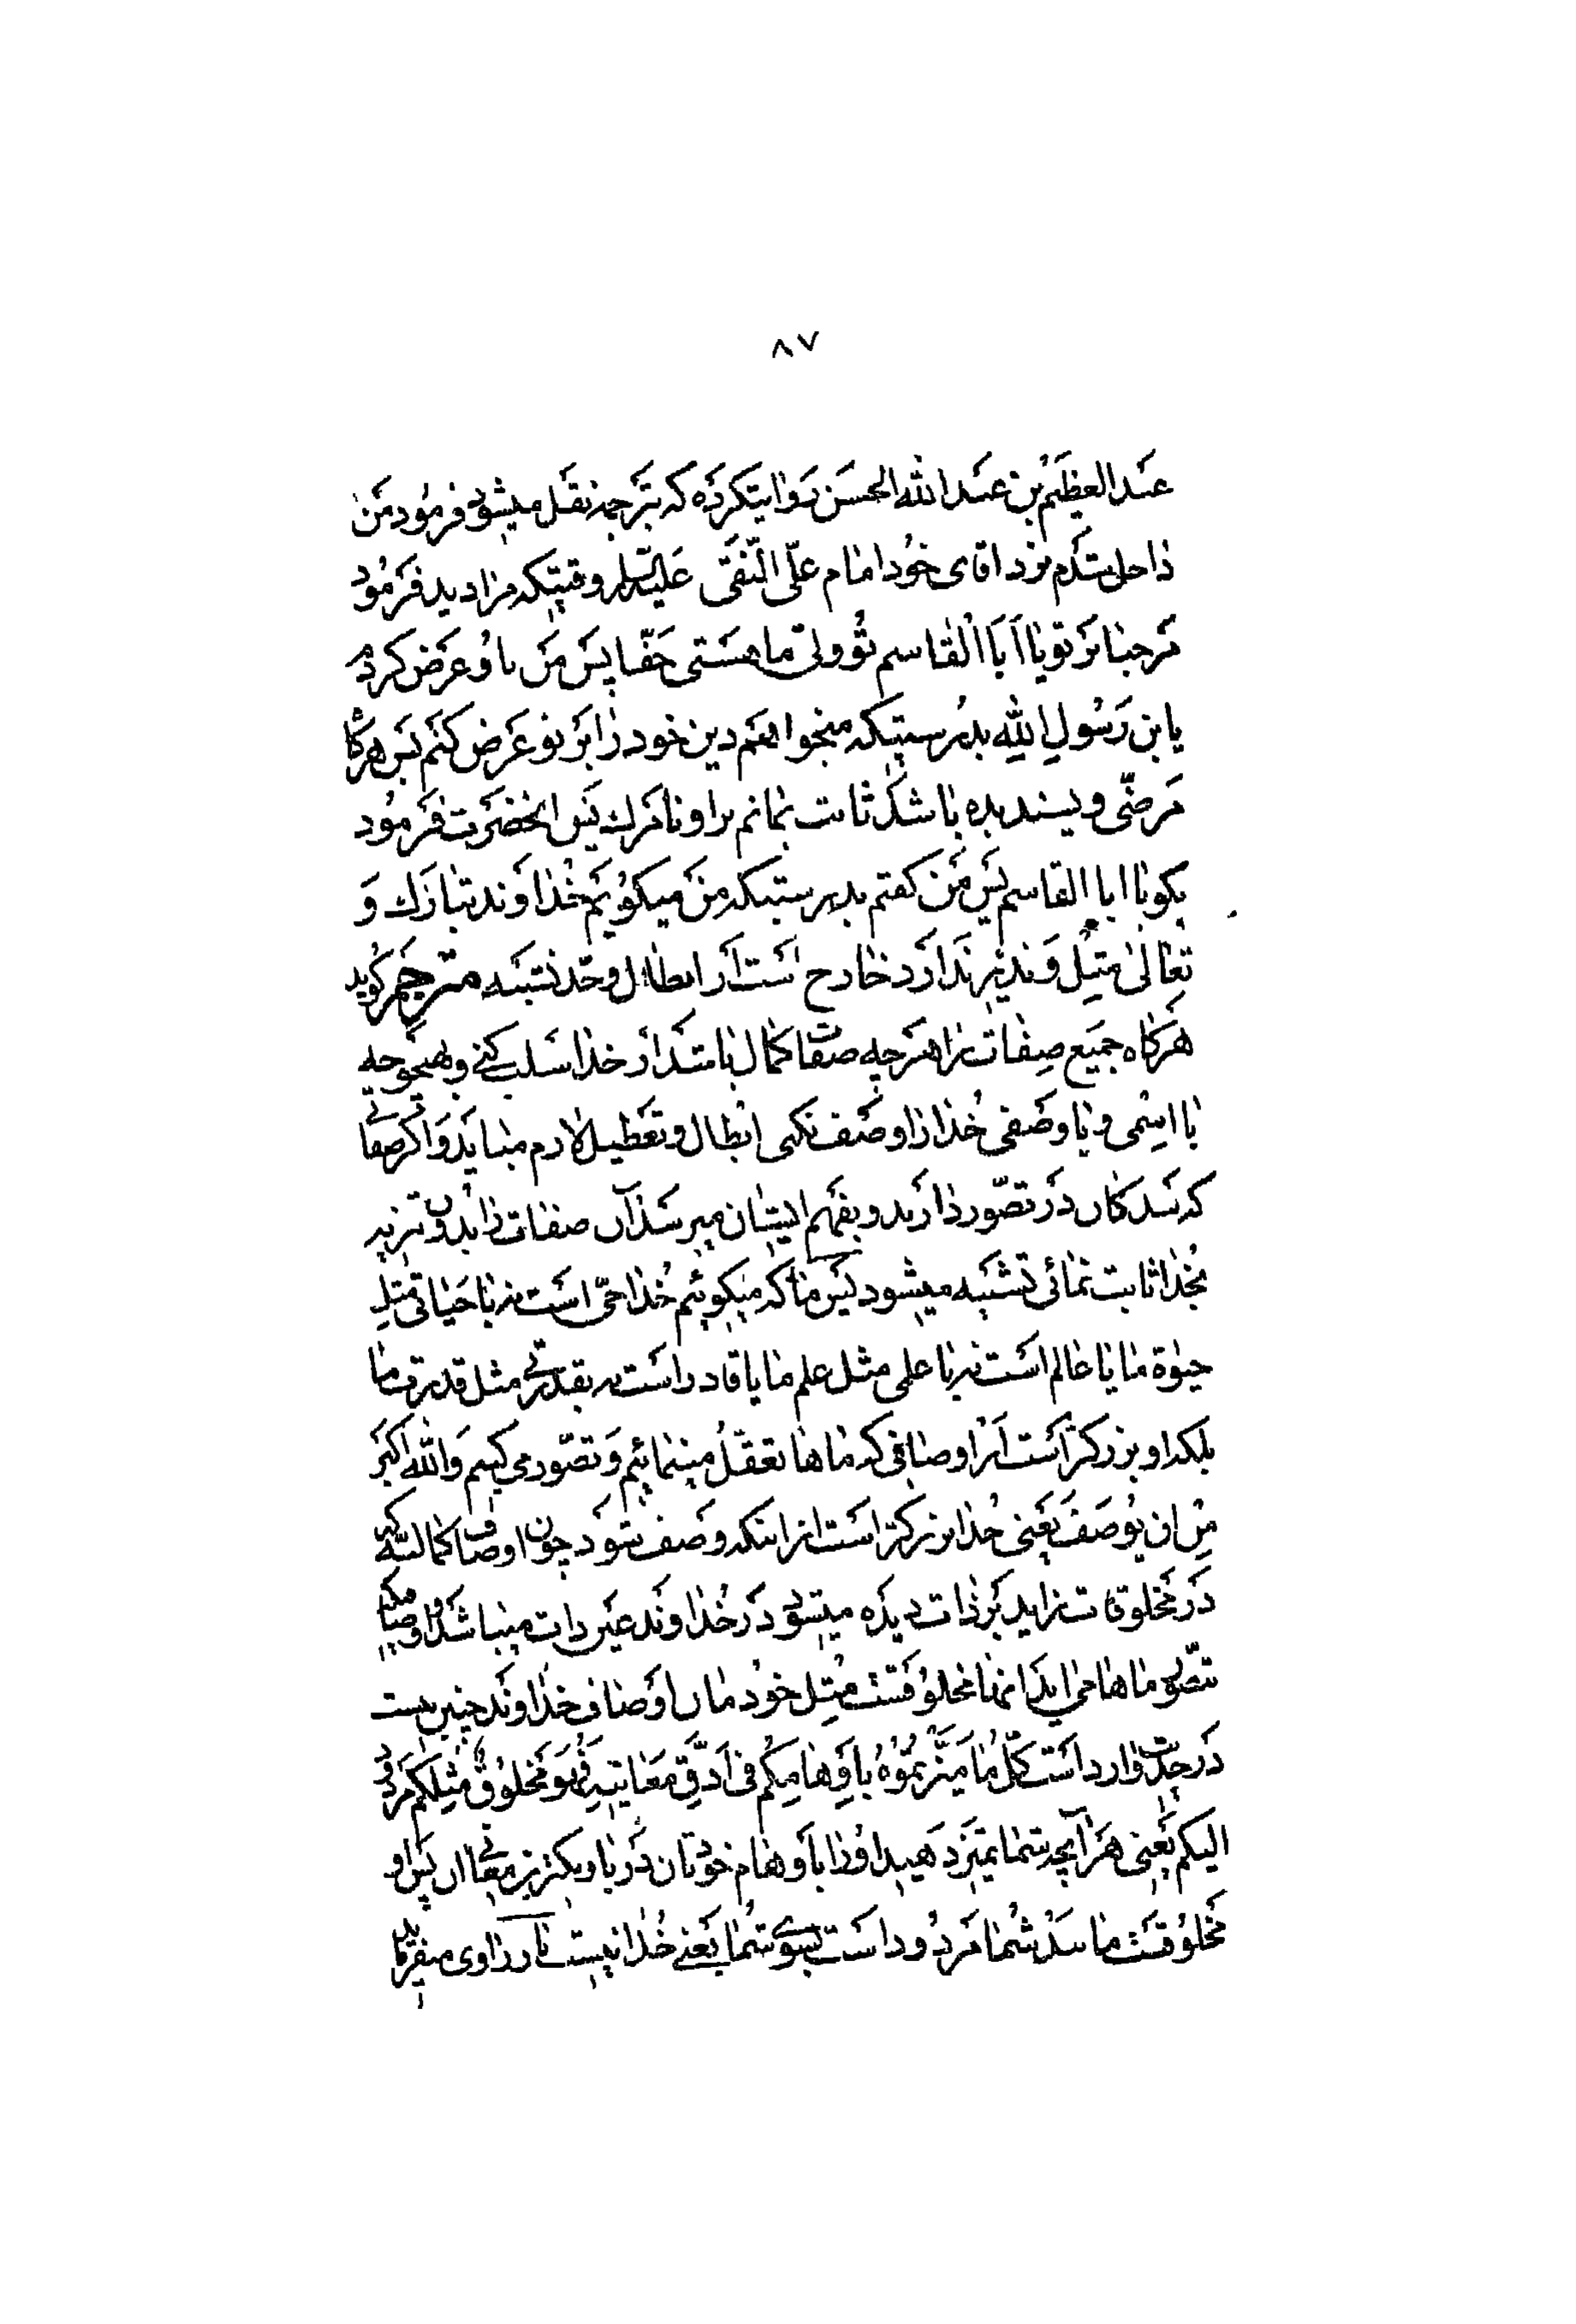 ۸۷
عبدالعظیم بن عبدالله الحسن روایتکرده که بترجمه نقل میشود فرمود من
داخل شدم نزد اقای خود امام علی النقی علیه السلم وقتیکه مرا دید فرمود
مرحبا بر تو یا اَبَا القاسم تو ولی ما هستی حقا پس من باو عرض کردم
یابن رسول الله بدرستیکه میخواهم دین خود را بر تو عرض کنم پس هرگاه
مرضی و پسندیده باشد ثابت بمانم بر او تا مرک پس انحضرت فرمود
بگو یا ابا القاسم پس من گفتم بدرستیکه من میگویم خداوند تبارک و
تعالی مثل و نظیر ندارد خارج است از ابطال و حد تشبیه مترجم گوید
هرگاه جمیع صفات را هر چه صفات کمال باشد از خدا سلب کنی و بهیچوجه
با اسمی و یا وصفی خدا را وصف نکنی ابطال و تعطیل لازم میاید و اگر صفاتی
که بندگان در تصور دارند و بفهم ایشان میرسد آن صفات را بدون تنزیه
بخدا ثابت نمائی تشبیه میشود پس ما که میگوئیم خدا حی است نه با حیاتی مثل
حیوة ما یا عالم است نه با علمی مثل علم ما یا قادر است نه بقدرتی مثل قدرت ما
بلکه او بزرگتر است از اوصافی که ماها تعقل مینمائیم و تصور می کنیم وَاللهُ اَکبَر
مِن ان یُوصَفَ یعنی خدا بزرگتر است از اینکه وصف شود چون اوصاف کمالیه که
در مخلوقات زاید بر ذات دیده میشود در خداوند عین ذات میباشد و اوصافیکه
بتصور ماها می اید انها مخلوقست مثل خود ما و اوصاف خداوند چنین نیست
در حدیث وارد است کُلُّ ما مَیَّزتُمُوهُ بِاَوهامِکُم فی اَدَقِّ مَعانیهِ فَهُوَ مَخلُوقٌ مِثلُکُم مَردُود
الیکم یعنی هر آنچه شما تمیز دهید او را باَوهام خودتان در باریکترین معانی ان پس او
مخلوقست مانند شما مردود است بسوی شما یعنی خدا نیست باز راوی میفرماید